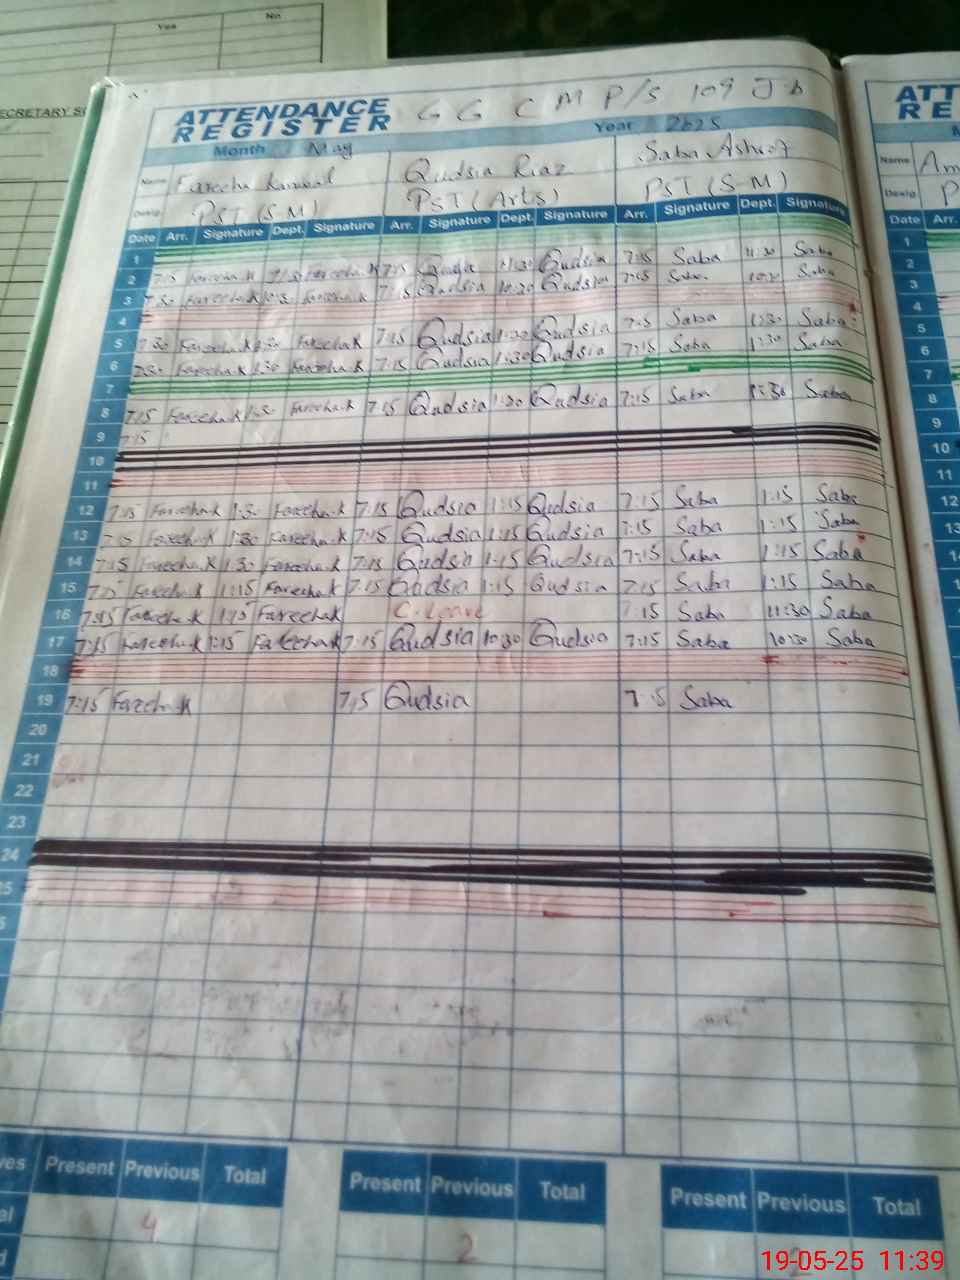 Yes No
ECRETARY S
ATTENDANCE REGISTER G G C M P/S 109 J b
Month May Year 2025
Name Fareeha Kanwal Qudsia Riaz Saba Ashraf
Desig. PST (S-M) PST (Arts) PST (S-M)
Date Arr. Signature Dept. Signature Arr. Signature Dept. Signature Arr. Signature Dept. Signature
1
2 7:15 Fareeha K 11:30 Fareeha K 7:15 Qudsia 11:30 Qudsia 7:15 Saba 11:30 Saba
3 7:30 Fareeha K 10:30 Fareeha K 7:15 Qudsia 10:30 Qudsia 7:15 Saba 10:30 Saba
4
5 7:30 Fareeha K 1:30 Fareeha K 7:15 Qudsia 1:30 Qudsia 7:15 Saba 1:30 Saba
6 7:30 Fareeha K 1:30 Fareeha K 7:15 Qudsia 1:30 Qudsia 7:15 Saba 1:30 Saba
7
8 7:15 Fareeha K 1:30 Fareeha K 7:15 Qudsia 1:30 Qudsia 7:15 Saba 1:30 Saba
9 7:15
10
11
12 7:15 Fareeha K 1:30 Fareeha K 7:15 Qudsia 1:15 Qudsia 7:15 Saba 1:15 Saba
13 7:15 Fareeha K 1:30 Fareeha K 7:15 Qudsia 1:15 Qudsia 7:15 Saba 1:15 Saba
14 7:15 Fareeha K 1:30 Fareeha K 7:15 Qudsia 1:15 Qudsia 7:15 Saba 1:15 Saba
15 7:15 Fareeha K 1:15 Fareeha K 7:15 Qudsia 1:15 Qudsia 7:15 Saba 1:15 Saba
16 7:15 Fareeha K 1:15 Fareeha K C. Leave 7:15 Saba 11:30 Saba
17 7:15 Fareeha K 1:15 Fareeha K 7:15 Qudsia 10:30 Qudsia 7:15 Saba 10:30 Saba
18
19 7:15 Fareeha K 7:15 Qudsia 7:15 Saba
20
21
22
23
24
5
ves Present Previous Total Present Previous Total Present Previous Total
al 4 2 2
d
ATT
RE
Name Am
Desig. P
Date Arr.
1
2
3
4
5
6
7
8
9
10
11
12
13
19-05-25 11:39